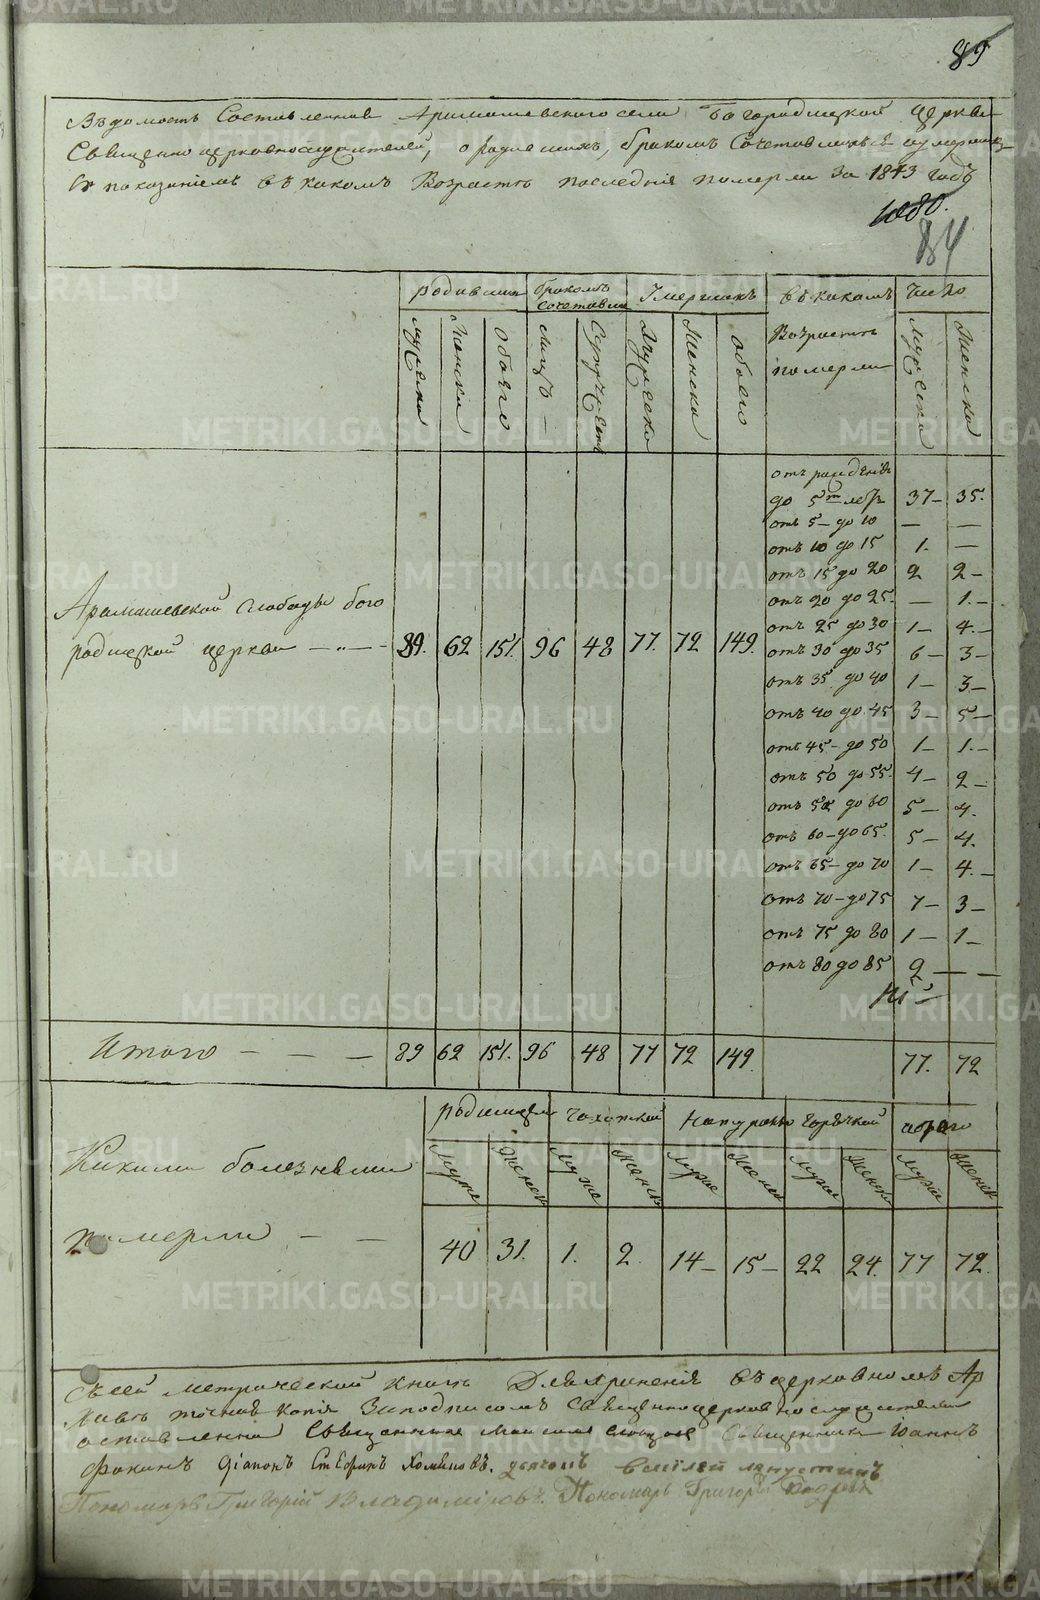 89
Вѣдомость Составленная Арамашевскаго села Богородицкой церкви
Священноцерковнослужителей, о родившихъ, бракомъ Сочетавшихся и умершихъ
Съ показаніемъ въ какомъ Возрастѣ последнія померли За 1843 годъ
1080.
84
родившихъ бракомъ сочетавш Умершихъ въ какомъ Возрастѣ померли Число
мужска Женска Обоего Лицъ Супружеств Мужеска Женска Обоего мужеска Женска
отъ рожденія
до 5ти летъ 37 – 35.
отъ 5 – до 10 — —
отъ 10 до 15 1. —
отъ 15 до 20 2 2 –
отъ 20 до 25. — 1. –
отъ 25 до 30 1 – 4. –
отъ 30 до 35 6 – 3 –
отъ 35 до 40 1 – 3 –
отъ 40 до 45 3 – 5 –
отъ 45 – до 50 1 – 1. –
отъ 50 до 55. 4 – 2 –
отъ 55 до 60 5 – 4.
отъ 60 – до 65. 5 – 4.
отъ 65 – до 70 1 – 4. –
отъ 70 – до 75 7 – 3 –
отъ 75 до 80 1 – 1 –
отъ 80 до 85 2 — —
Арамашевской слободы бого
родицкой церкви – „ – – 89. 62 151. 96 48 77. 72 149.
Итого – – – 89 62 151. 96 48 77 72 149 77. 72
родимцем чахоткой натурально горячкой
Муже Женск Муже Женск Муже Женск Муже Женск Муже Женск
Какими болезнями
померли – – 40 31. 1. 2. 14 – 15 – 22 24. 77 72.
Съ сей метрической книги Для храненія въ церковномъ Ар
хивѣ точная копія За подписомъ Священноцерковнослужителей
оставленна Священникъ Священникъ Іоаннъ
Фокинъ Діаконъ Стефанъ Хоминовъ. дьячекъ
Пономарь Григорій Владиміровъ. Пономарь Григорій
METRIKI.GASO-URAL.RU